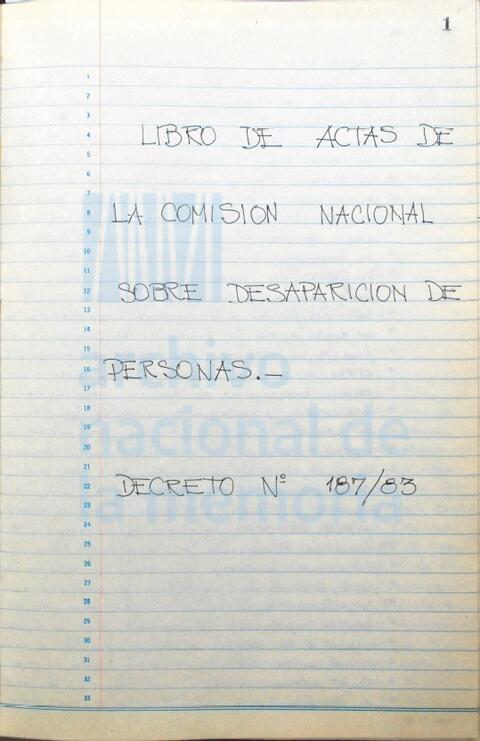 1
LIBRO DE ACTAS DE
LA COMISION NACIONAL
SOBRE DESAPARICION DE
PERSONAS.—
DECRETO Nº 187/83
archivo
nacional de
la memoria
1
2
3
4
5
6
7
8
9
10
11
12
13
14
15
16
17
18
19
20
21
22
23
24
25
26
27
28
29
30
31
32
33